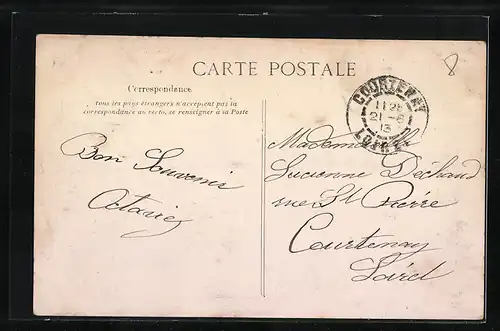 CARTE POSTALE
8
Correspondance
tous les pays étrangers n'acceptent pas la
correspondance au verso, se renseigner à la Poste
COURTENAY
11 25
21 - 6
13
LOIRET
Bon Souvenir
Octavie
Mademoiselle
Lucienne Déchaud
rue St Pierre
Courtenay
Loiret